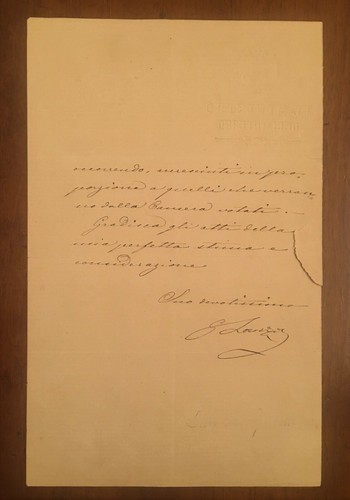 occorrendo, aumentati in pro-
porzione a quelli che verran-
no dalla Camera votati.
Gradisca gli atti della
mia perfetta stima e
considerazione
Suo devotissimo
G Lanza